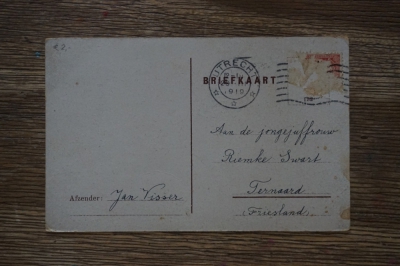 UTRECHT
1919
BRIEFKAART
Aan de jongejuffrouw
Riemke Swart
Ternaard
(Friesland)
Afzender: Jan Visser